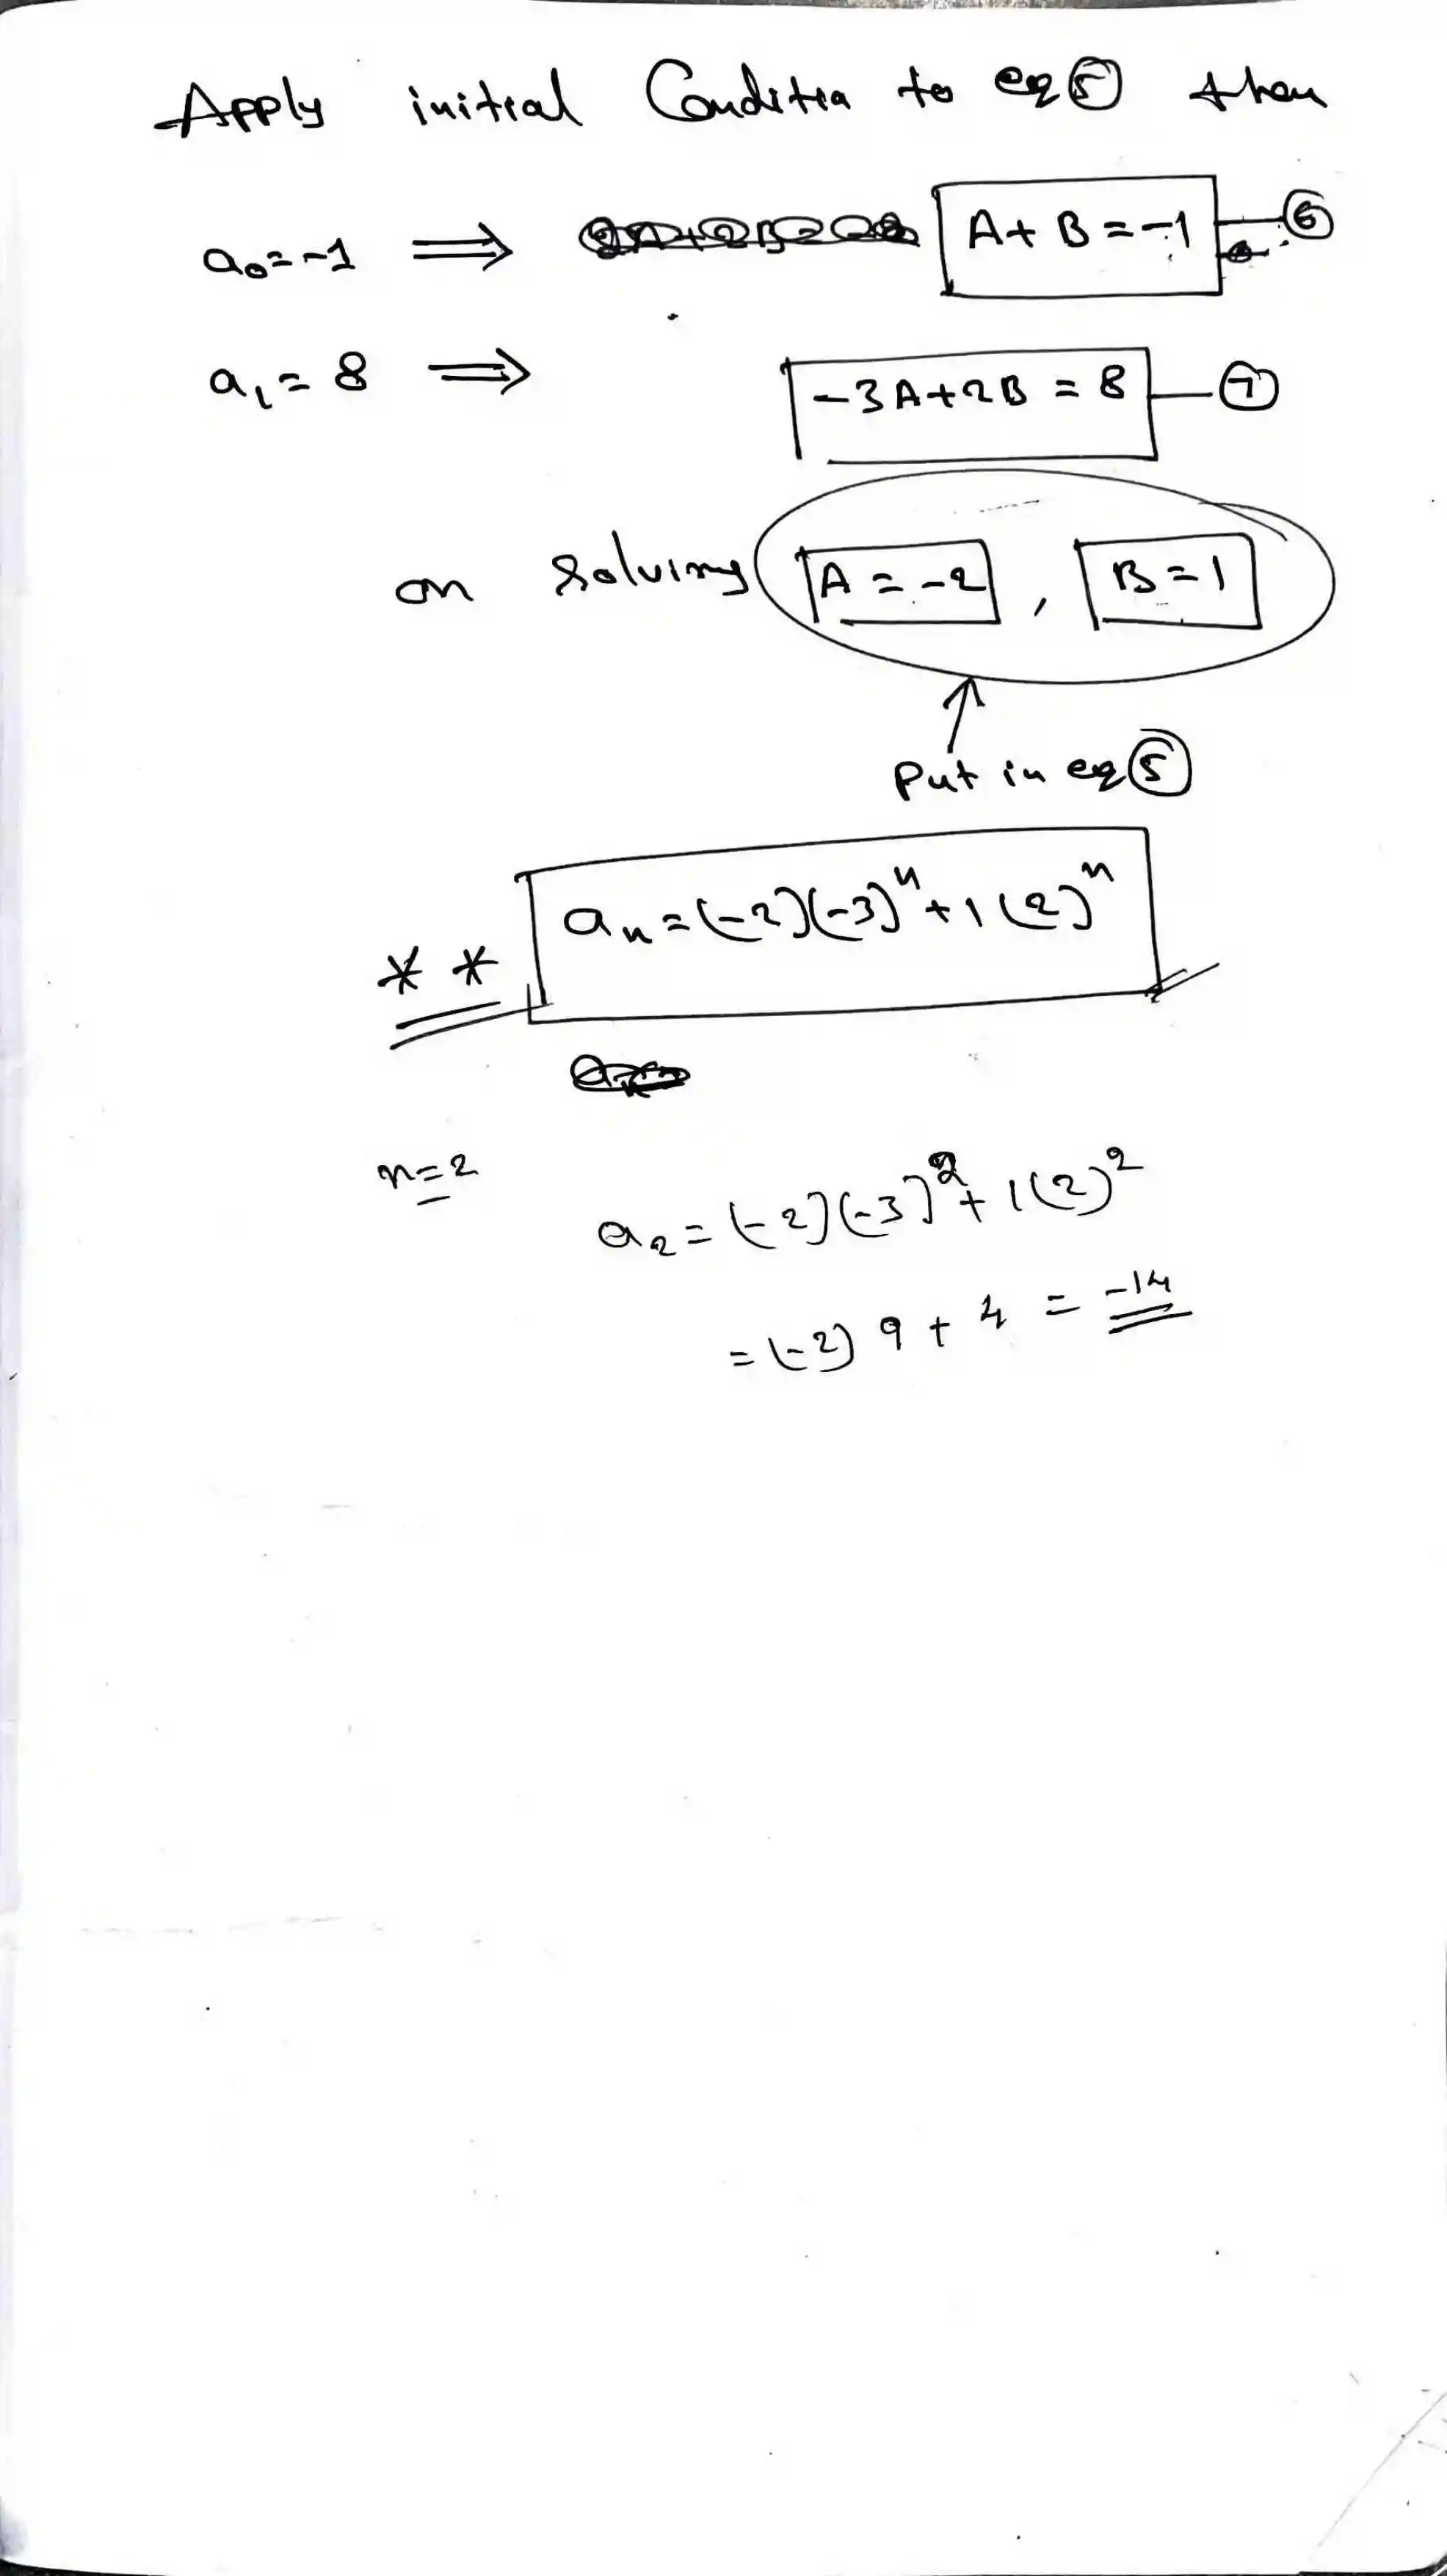 Apply initial Condition to eq ⑤ then
a₀ = -1 ⟹ A + B = -1 — ⑥
a₁ = 8 ⟹ -3A + 2B = 8 — ⑦
on solving A = -2 , B = 1
↑
Put in eq ⑤
** aₙ = (-2)(-3)ⁿ + 1(2)ⁿ
n = 2
a₂ = (-2)(-3)² + 1(2)²
= (-2) 9 + 4 = -14